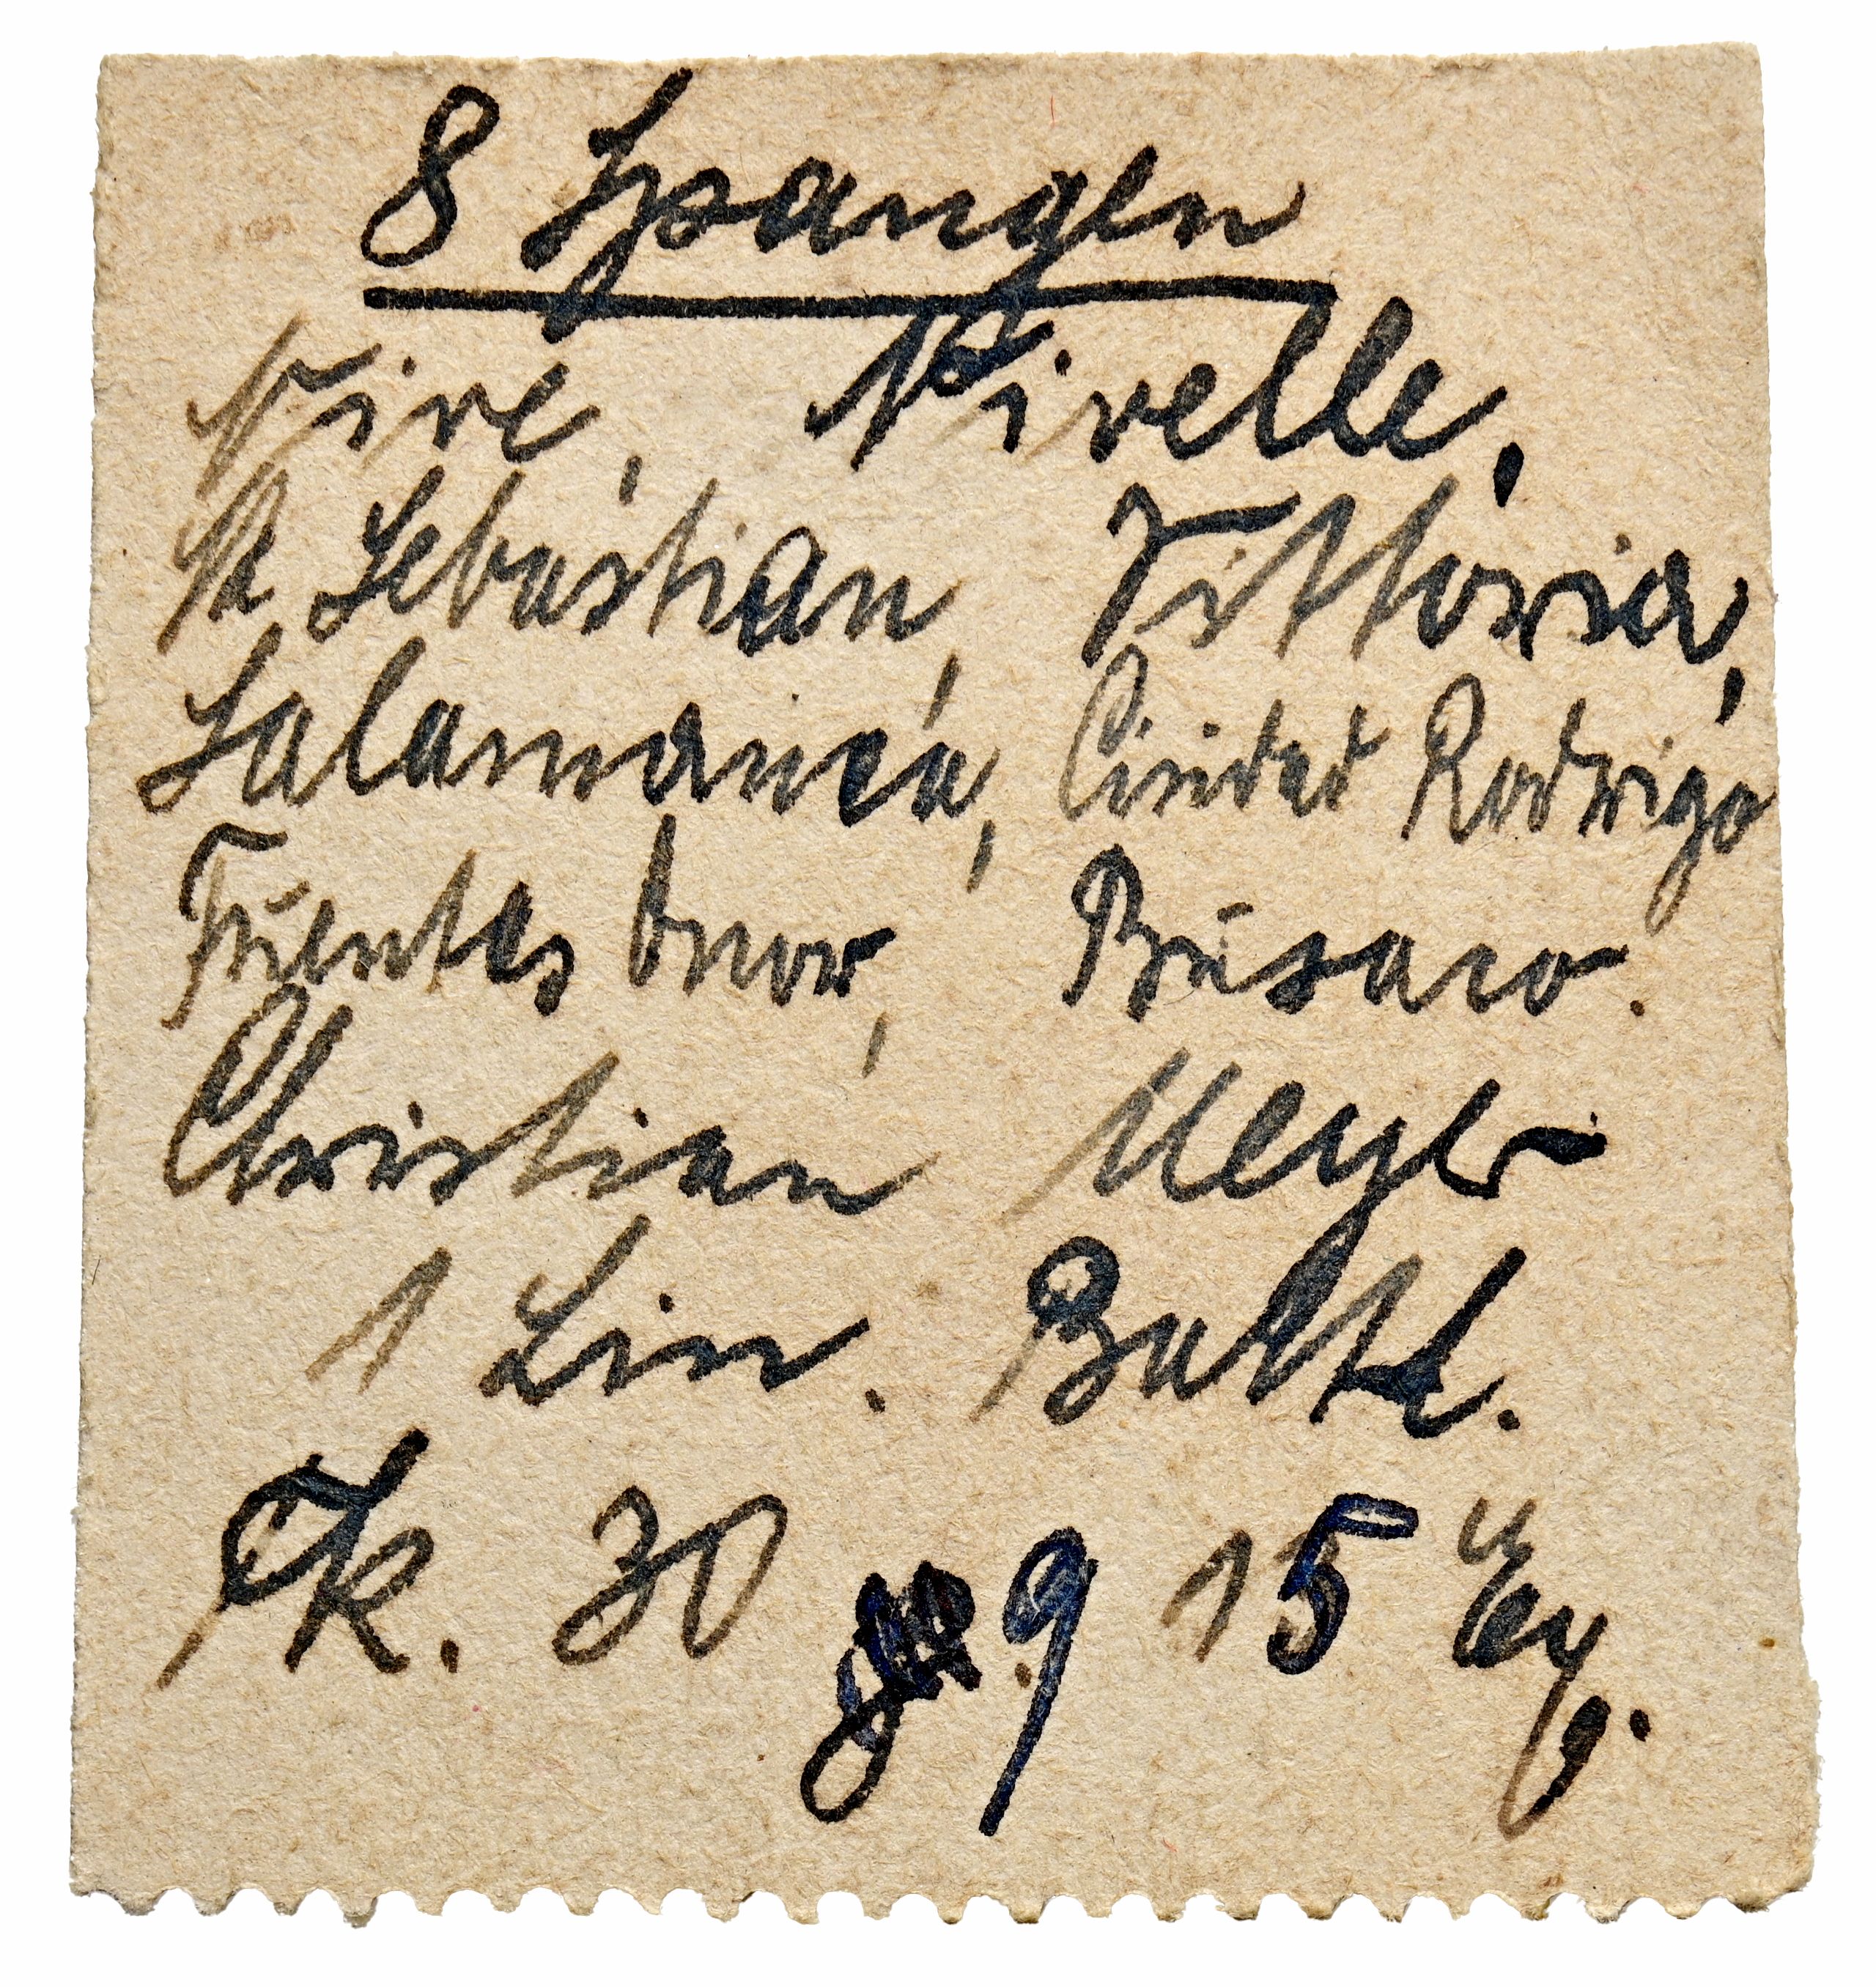 8 Spangen
Nive, Nivelle,
St Sebastian, Vittoria,
Salamanca, Ciudad Rodrigo
Fuentes Onor, Busaco.
Christian Meyer
1 Lin. Batt.
30 9 15